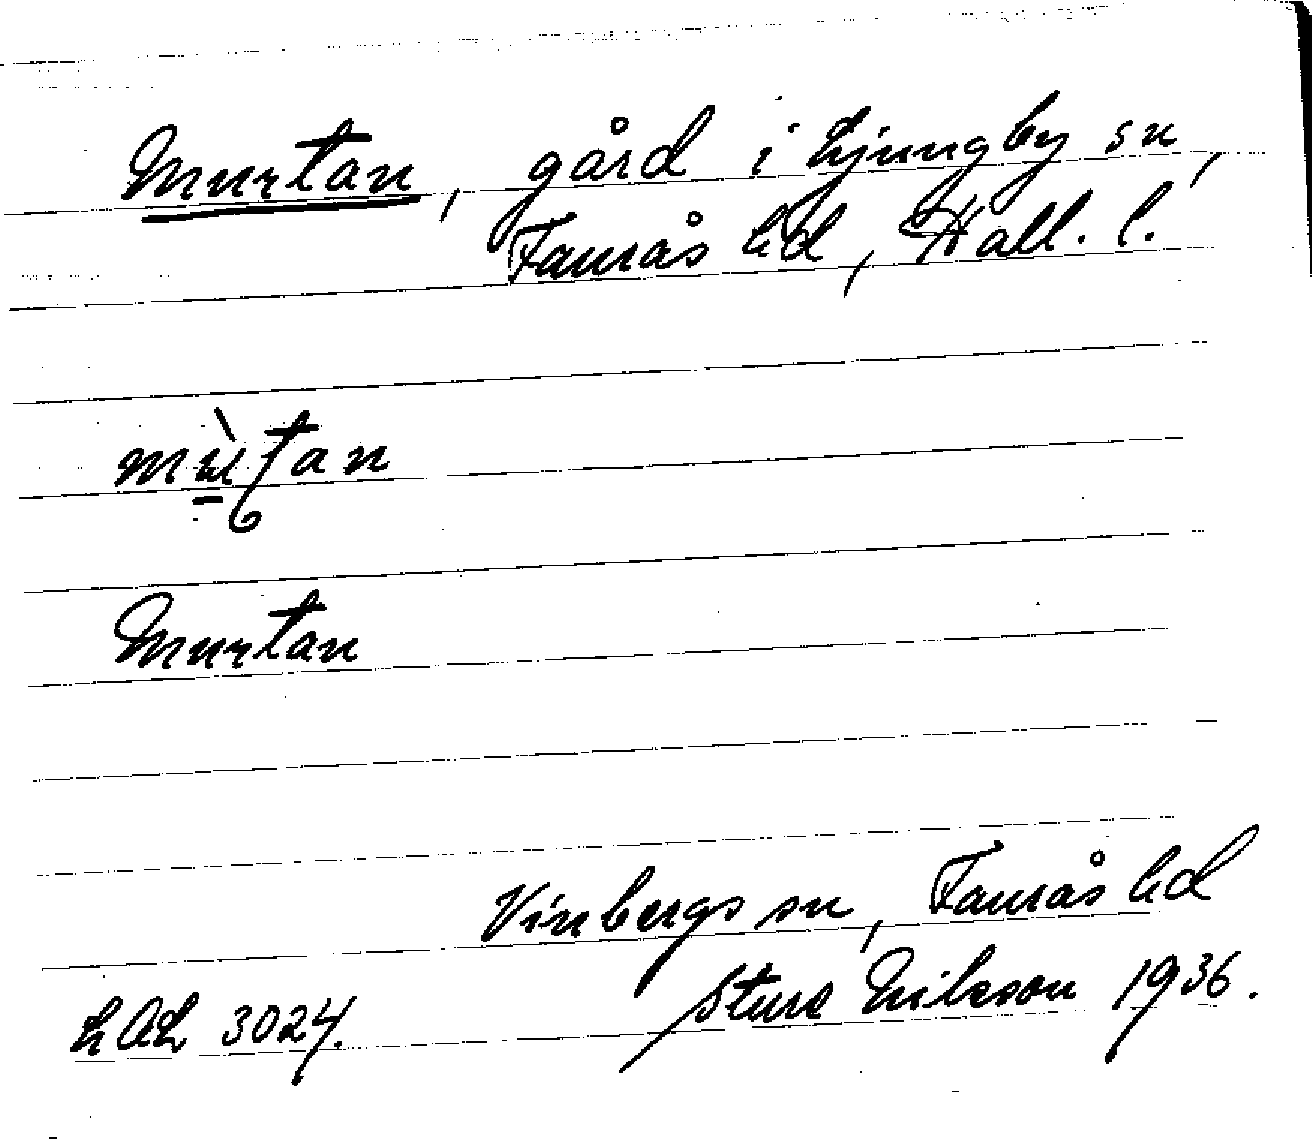 Murtan, gård i Ljungby sn,
Faurås hd, Hall. l.
Murtan
Vinbergs sn, Faurås hd
LAL 3024. Sture Nilsson 1936.